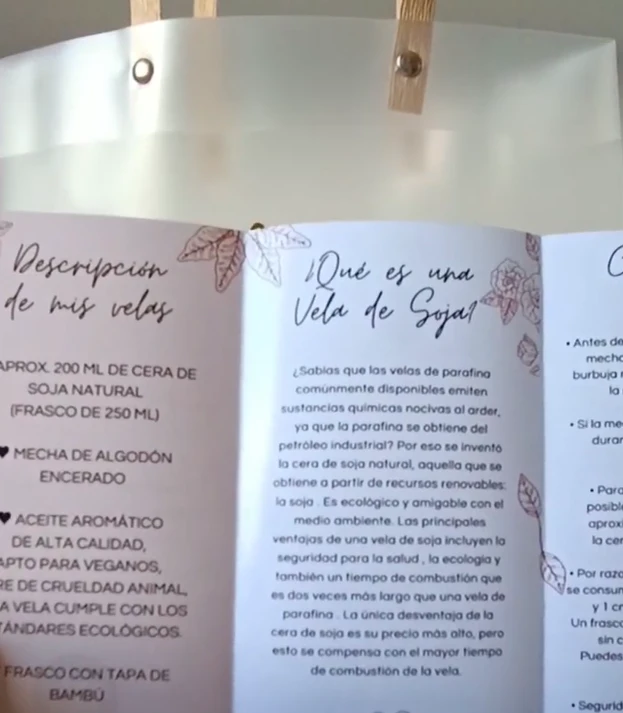 Descripción
de mis velas
APROX. 200 ML DE CERA DE
SOJA NATURAL
(FRASCO DE 250 ML)
♥ MECHA DE ALGODÓN
ENCERADO
♥ ACEITE AROMÁTICO
DE ALTA CALIDAD,
APTO PARA VEGANOS,
RE DE CRUELDAD ANIMAL,
A VELA CUMPLE CON LOS
TÁNDARES ECOLÓGICOS.
FRASCO CON TAPA DE
BAMBÚ
¿Qué es una
Vela de Soja?
¿Sabías que las velas de parafina
comúnmente disponibles emiten
sustancias químicas nocivas al arder,
ya que la parafina se obtiene del
petróleo industrial? Por eso se inventó
la cera de soja natural, aquella que se
obtiene a partir de recursos renovables:
la soja . Es ecológico y amigable con el
medio ambiente. Las principales
ventajas de una vela de soja incluyen la
seguridad para la salud , la ecología y
también un tiempo de combustión que
es dos veces más largo que una vela de
parafina . La única desventaja de la
cera de soja es su precio más alto, pero
esto se compensa con el mayor tiempo
de combustión de la vela.
• Antes de
mecha
burbuja
la
• Si la me
durar
• Para
posibl
aproxi
la cer
• Por razo
se consum
y 1 cr
Un frasco
sin c
Puedes
• Segurid